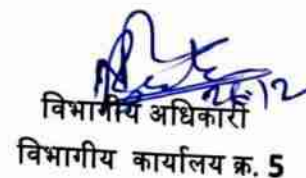 26/12
विभागीय अधिकारी
विभागीय कार्यालय क्र. 5